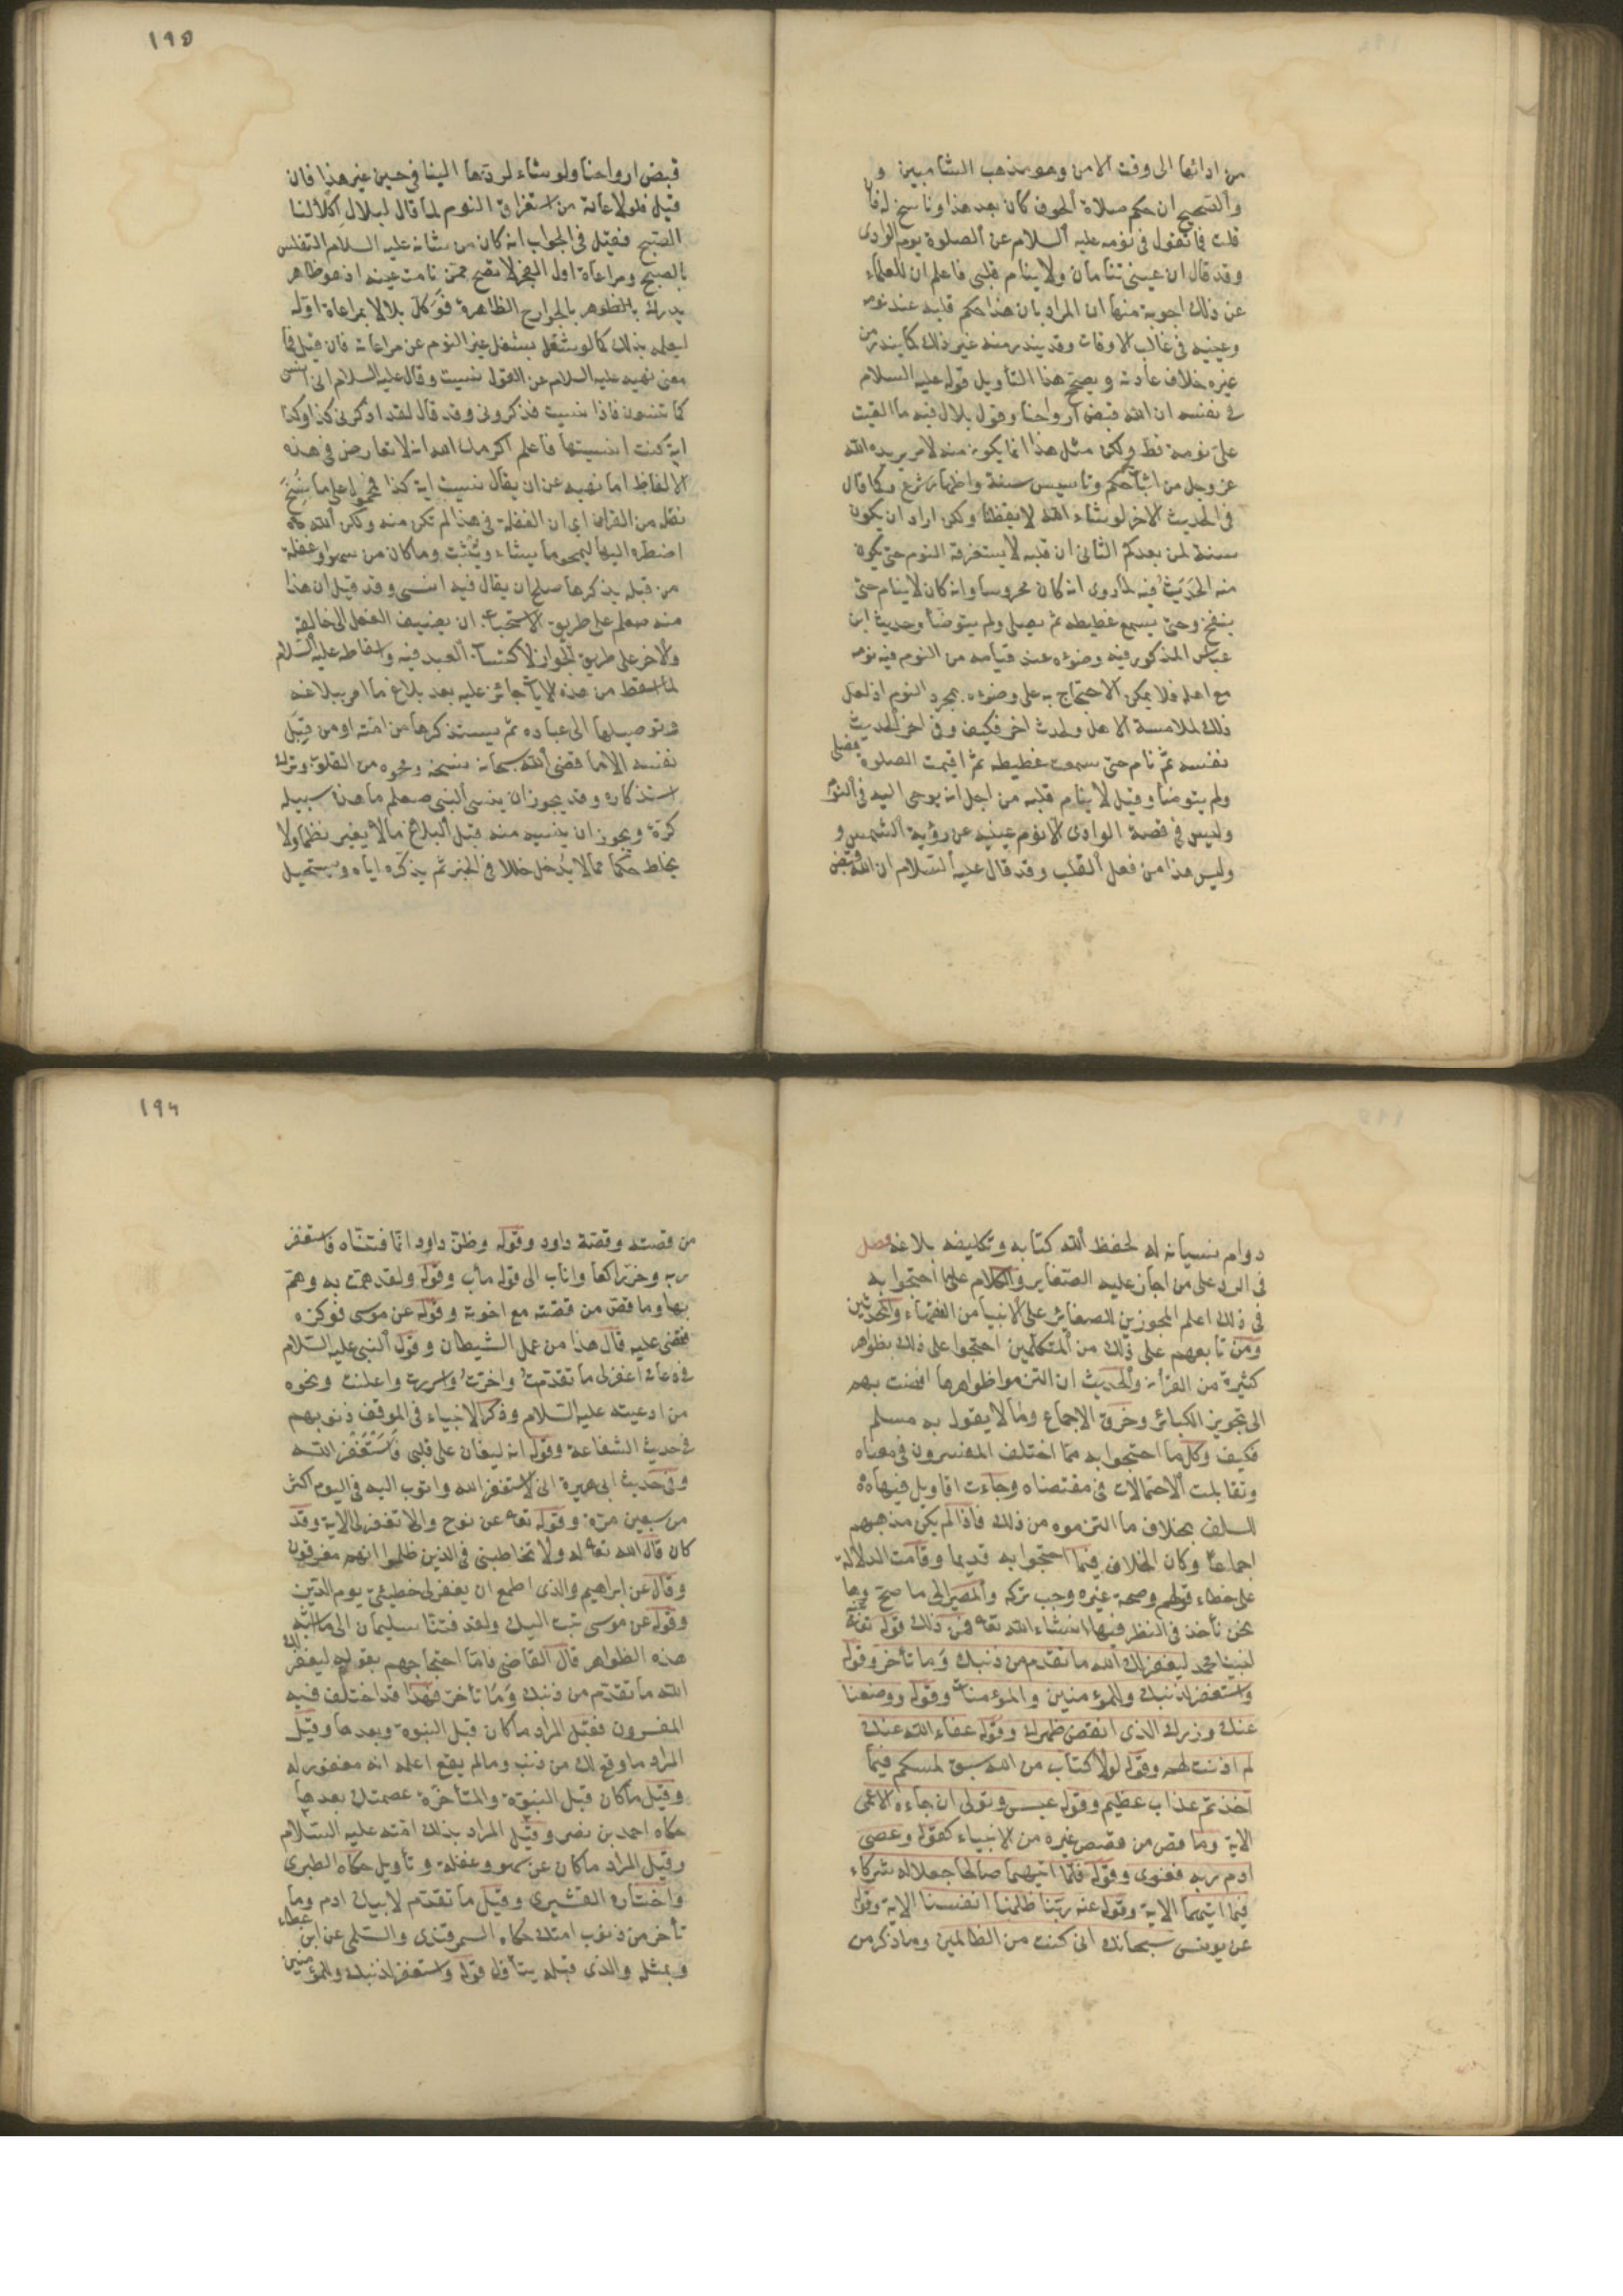 من ادائها الى وقت الامن وهو مذهب الشاميين و
والصحيح ان حكم صلاة الخوف كان بعد هذا وناسخ له فان
قلت فما تقول في نومه عليه السلام عن الصلوة يوم الوادى
وقد قال ان عينى تنامان ولا ينام قلبى فاعلم ان للعلماء
عن ذلك اجوبة منها ان المراد بان هذا حكم قلبه عند نومه
وعينيه في غالب الاوقات وقد يندر منه غير ذلك كما يندر من
غيره خلاف عادته ويصحح هذا التأويل قوله عليه السلام
في نفسه ان الله قبض ارواحنا وقول بلال فيه ما القيت
على نومة قط ولكن مثل هذا انما يكون منه لامر يريده الله
عز وجل من اثبات حكم وتاسيس سنة واظهار شرع وكما قال
في الحديث الاخر لو شاء الله لايقظنا ولكن اراد ان يكون
سنة لمن بعدكم الثانى ان قلبه لا يستغرقه النوم حتى يكون
منه الحدث فيه لما روى انه كان محروسا وانه كان لا ينام حتى
ينفخ وحتى يسمع غطيطه ثم يصلى ولم يتوضأ وحديث ابن
عباس المذكور فيه وضوئه عند قيامه من النوم فيه نومه
مع اهله فلا يمكن الاحتجاج به على وضوءه بمجرد النوم اذ لعل
ذلك لملامسة الاهل ولحدث اخر فكيف وفى اخر الحديث
نفسه ثم نام حتى سمعت غطيطه ثم اقيمت الصلوة فصلى
ولم يتوضأ وقيل لا ينام قلبه من اجل انه يوحى اليه في النوم
وليس في قصة الوادى الا نوم عينيه عن رؤية الشمس و
وليس هذا من فعل القلب وقد قال عليه السلام ان الله قبض
١٩٥
قبض ارواحنا ولو شاء لردها الينا في حين غير هذا فان
قيل فلولا عادته من استغراق النوم لما قال لبلال اكلأ لنا
الصبح فقيل فى الجواب انه كان من شانه عليه السلام التغليس
بالصبح ومراعاة اول الفجر لا تصح ممن نامت عينه اذ هو ظاهر
يدرك بالظهر بالجوارح الظاهرة فوكل بلالا بمراعاة اوله
ليعلمه بذلك كما لو شغل بشغل غير النوم عن مراعاته فان قيل فما
معنى نهيه عليه السلام عن القول نسيت وقال عليه السلام انى انسى
كما تنسون فاذا نسيت فذكرونى وقد قال لقد اذكرنى كذا وكذا
اية كنت انسيتها فاعلم اكرمك الله انه لا تعارض في هذه
الالفاظ اما نهيه عن ان يقال نسيت اية كذا فمحمول على ما نسخ
نقله من القران اى ان الغفلة في هذا لم تكن منه ولكن الله تعالى
اضطره اليها ليمحو ما يشاء ويثبت وما كان من سهو او غفلة
من قبله يذكرها صلح ان يقال فيه انسى وقد قيل ان هذا
منه صعلم على طريق الاستحباب ان يضيف الفعل الى خالقه
والاخر على طريق الجواز لاكتساب العبد فيه واسقاطه عليه السلام
لما اسقط من هذه الايات جائز عليه بعد بلاغ ما امر ببلاغه
وتوصيلها الى عباده ثم يستذكرها من امته او من قبل
نفسه الا ما قضى الله سبحانه نسخه ومحوه من القلوب وترك
استذكاره وقد يجوز ان ينسى النبى صعلم ما هذا سبيله
كرة ويجوز ان ينسيه منه قبل البلاغ ما لا يغير نظما ولا
يخلط حكما مما لا يدخل خللا في الخبر ثم يذكره اياه ويستحيل
دوام نسيانه له لحفظ الله كتابه وتكليفه بلاغه فصل
في الرد على من اجاز عليه الصغاير والكلام على ما احتجوا به
في ذلك اعلم المجوزين للصغائر على الانبيا من الفقهاء والمحدثين
ومن تابعهم على ذلك من المتكلمين احتجوا على ذلك بظواهر
كثيرة من القرأن والحديث ان التزموا ظواهرها افضت بهم
الى تجويز الكبائر وخرق الاجماع وما لا يقول به مسلم
فكيف وكل ما احتجوا به مما اختلف المفسرون في معناه
وتقابلت الاحتمالات في مقتضاه وجاءت اقاويل فيها
السلف بخلاف ما التزموه من ذلك فاذا لم يكن مذهبهم
اجماعا وكان الخلاف فيما احتجوا به قديما وقامت الدلالة
على خطاء قولهم وصحة غيره وجب تركه والمصير الى ما صح وها
نحن نأخذ في النظر فيها انشاء الله تعه فمن ذلك قوله تعه
لنبينا محمد ليغفر لك الله ما تقدم من ذنبك وما تأخر وقوله
واستغفر لذنبك وللمؤمنين والمؤمنات وقوله ووضعنا
عنك وزرك الذى انقض ظهرك وقوله عفاء الله عنك
لم اذنت لهم وقوله لولا كتاب من الله سبق لمسكم فيما
اخذتم عذاب عظيم وقوله عبس وتولى ان جاءه الاعمى
الاية وما قص من قصص غيره من الانبياء كقوله وعصى
ادم ربه فغوى وقوله فلما اتيهما صالحا جعلا له شركاء
فيما اتيهما الاية وقوله عنه ربنا ظلمنا انفسنا الاية وقوله
عن يونس سبحانك انى كنت من الظالمين وما ذكر من
١٩٦
من قصته وقصة داود وقوله وظن داود انما فتناه فاستغفر
ربه وخر راكعا واناب الى قوله مأب وقوله ولقد همت به وهم
بها وما قص من قصته مع اخوته وقوله عن موسى فوكزه
فقضى عليه قال هذا من عمل الشيطان وقول النبى عليه السلام
في دعائه اغفر لى ما تقدمت واخرت واسررت واعلنت ونحوه
من ادعيته عليه السلام وذكر الانبياء في الموقف ذنوبهم
في حديث الشفاعة وقوله انه ليغان على قلبى فاستغفر الله
وفى حديث ابى هريرة انى لاستغفر الله واتوب اليه في اليوم اكثر
من سبعين مرة وقوله تعه عن نوح والا تغفر لى الاية وقد
كان قال الله تعه له ولا تخاطبنى في الذين ظلموا انهم مغرقون
وقال عن ابراهيم والذى اطمع ان يغفر لى خطيئتى يوم الدين
وقوله عن موسى تبت اليك ولقد فتنا سليمان الى ما اشبه
هذه الظواهر قال القاضى فاما احتجاجهم بقوله ليغفر لك
الله ما تقدم من ذنبك وما تأخر فهذا قد اختلف فيه
المفسرون فقيل المراد ما كان قبل النبوة وبعدها وقيل
المراد ما وقع لك من ذنب وما لم يقع اعلمه انه مغفور له
وقيل ما كان قبل النبوة والمتأخرة عصمتك بعدها
حكاه احمد بن نصر وقيل المراد بذلك امته عليه السلام
وقيل المراد ما كان عن سهو وغفلة وتأويل حكاه الطبرى
واختاره القشيرى وقيل ما تقدم لابيك ادم وما
تأخر من ذنوب امتك حكاه السمرقندى والسلمى عن ابن عطاء
وبمثله والذى قبله يتأول قوله واستغفر لذنبك وللمؤمنين